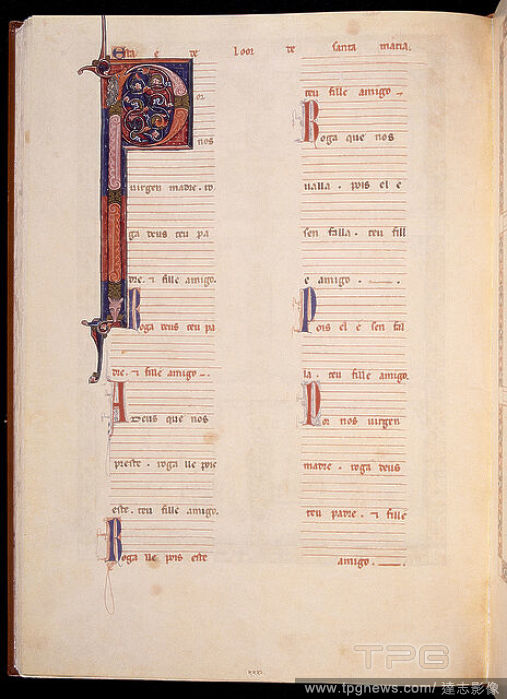 Esta e de loor de santa maria.
Por
nos
uirgen madre . ro
ga deus teu pa
dre . ⁊ fille amigo.
Roga deus teu pa
dre . ⁊ fille amigo .
A Deus que nos
preste . roga lle pois
este . teu fille amigo.
Roga lle pois este
teu fille amigo
Roga que nos
ualla . pois el e
sen falla . teu fill
e amigo .
Pois el e sen fal
la . teu fille amigo.
Por nos uirgen
madre . roga deus
teu padre . ⁊ fille
amigo .
TPG
www.tpgnews.com/ 達志影像